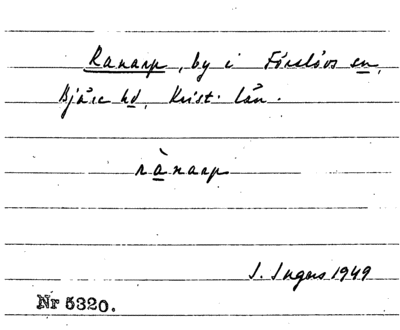 Ranarp, by i Förslövs sn,
Bjäre hd, Krist. län.
rànarp
I. Ingers 1949
Nr 5320.